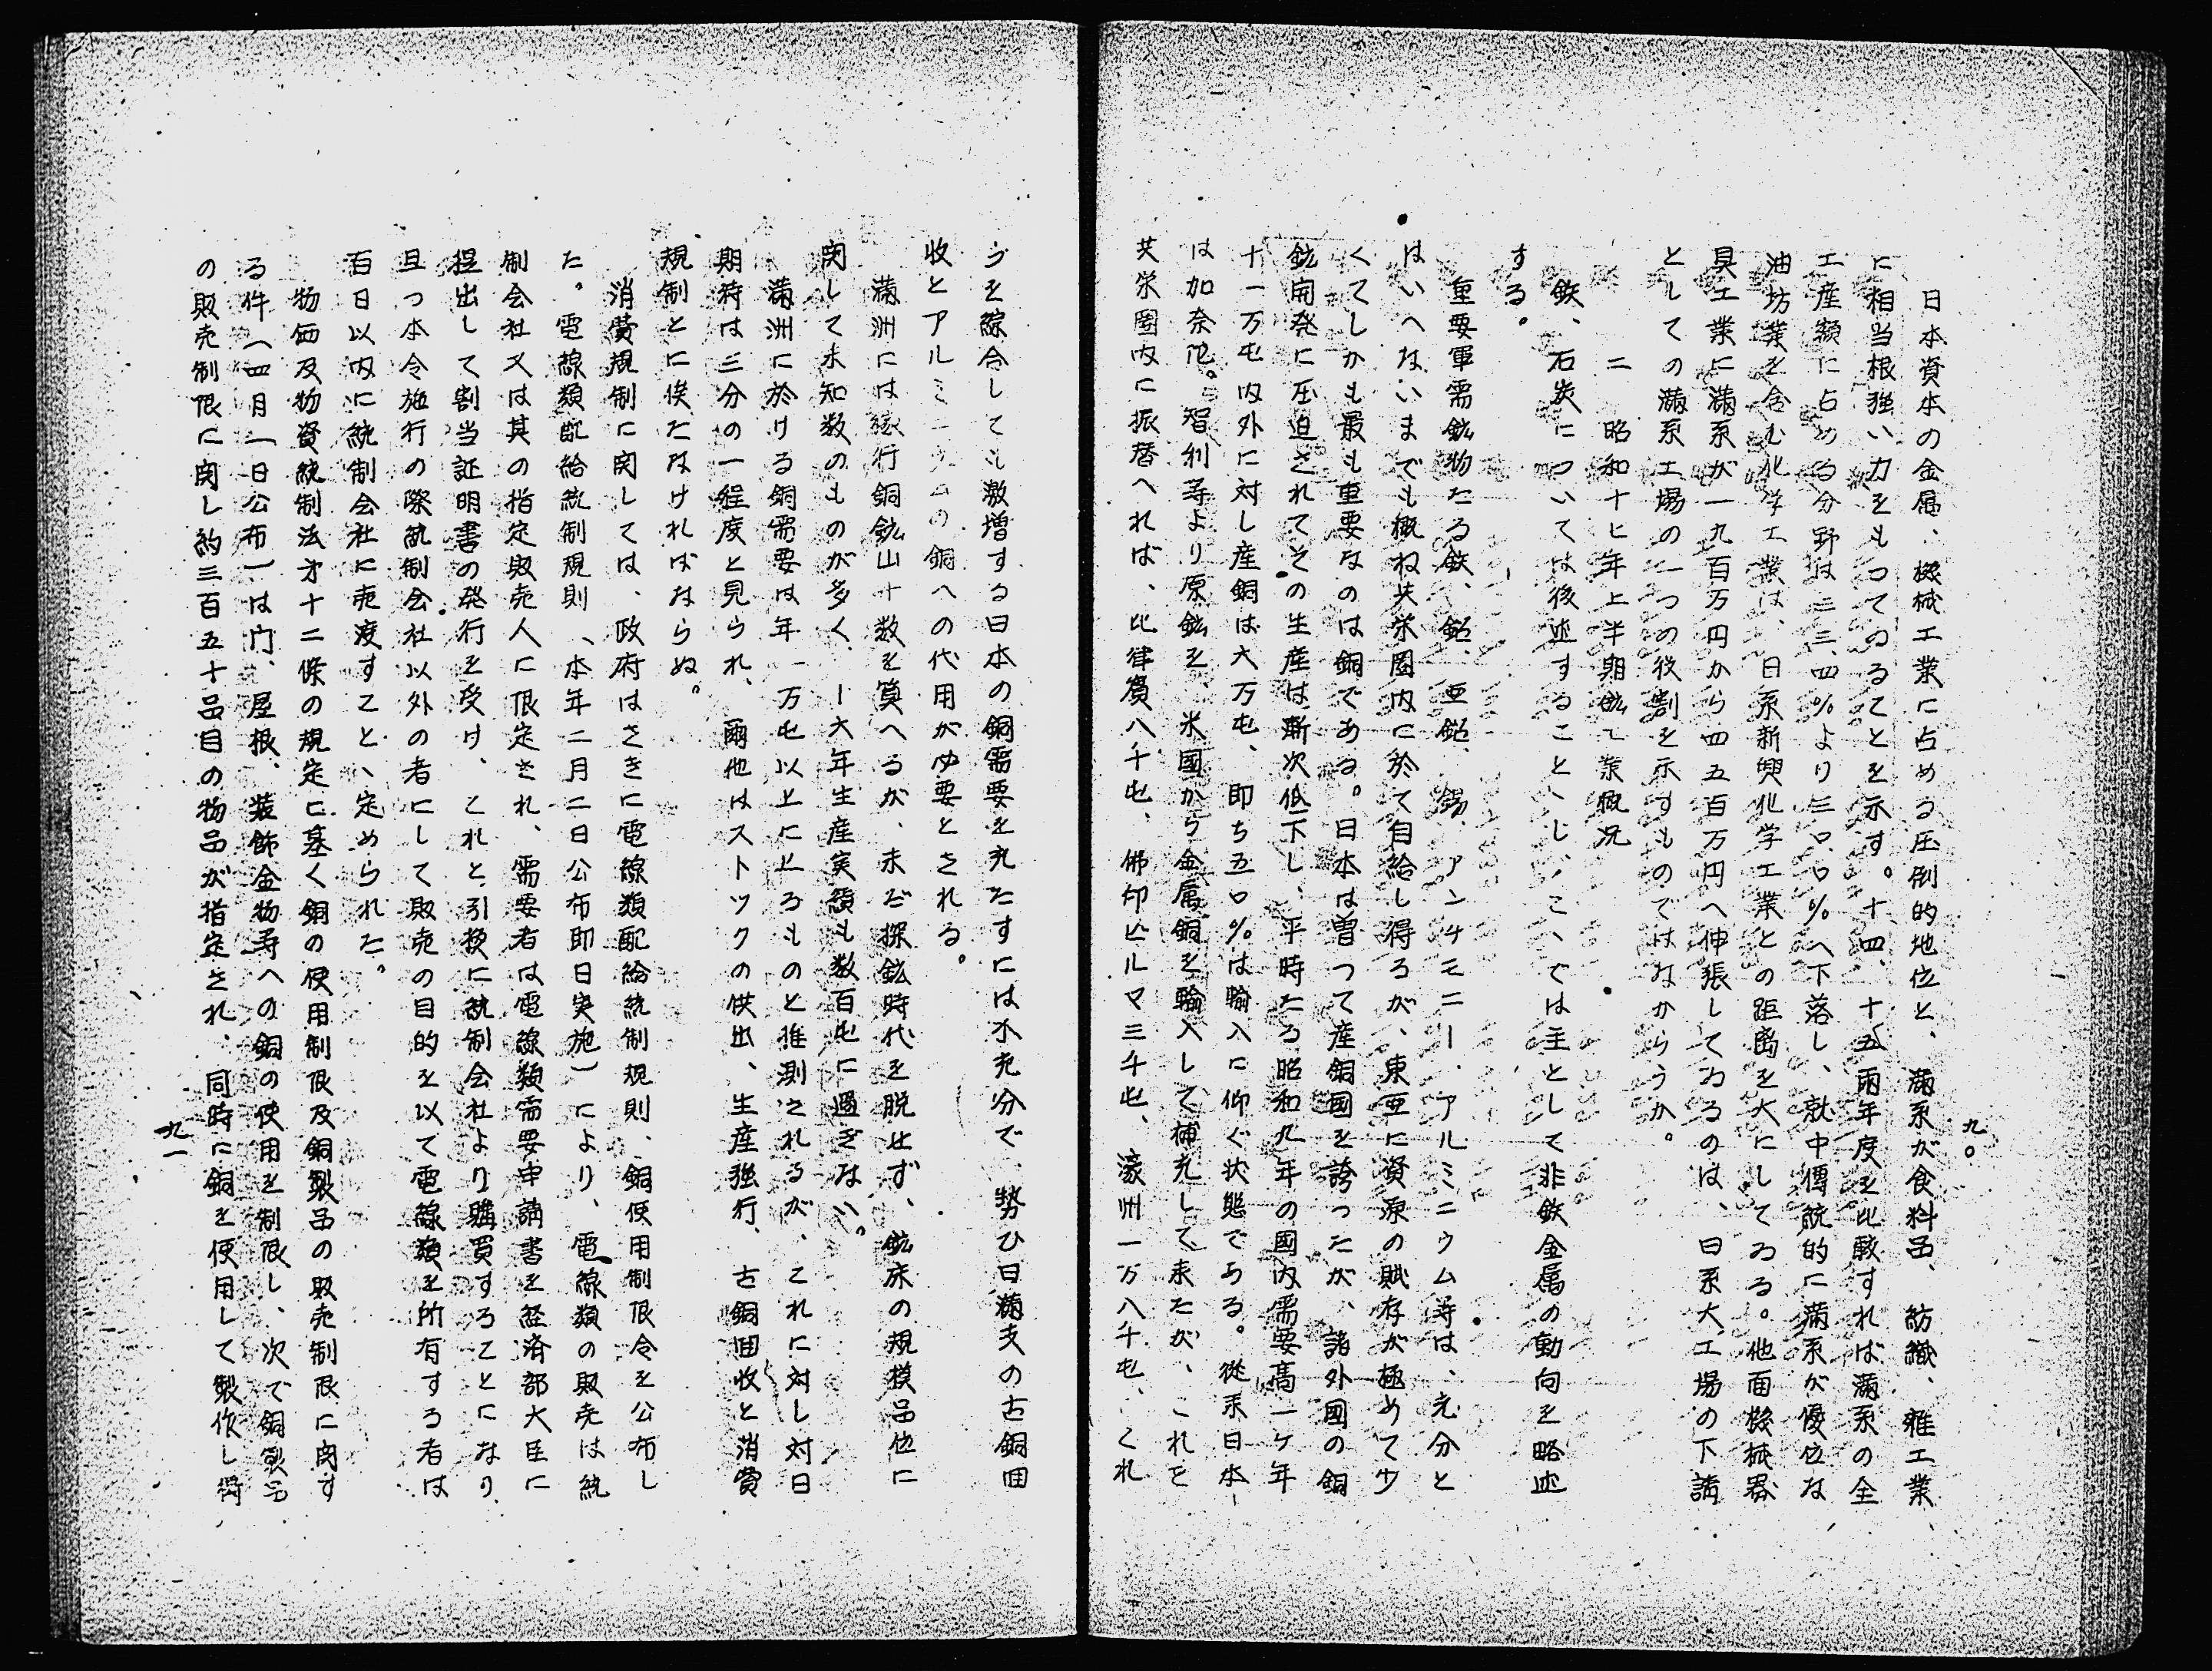 九〇
日本資本の金属、機械工業に占める圧倒的地位と、満系が食料品、紡織、雑工業、
に相当根強い力をもつてゐることを示す。十四、十五両年度を比較すれば満系の全
工産額に占める分野は三三、四％より三〇、〇％へ下落し、就中傳統的に満系が優位な
油坊業を含む化学工業は、日系新興化学工業との距離を大にしてゐる。他面機械器
具工業に満系が一九百万円から四五百万円へ伸張してゐるのは、日系大工場の下請
としての満系工場の一つの役割を示すものではなからうか。
二　昭和十七年上半期鉱工業概況
鉄、石炭については後述することゝし、こゝでは主として非鉄金属の動向を略述
する。
重要軍需鉱物たる鉄、鉛、亜鉛、錫、アンチモニー、アルミニウム等は、充分と
はいへないまでも概ね共栄圏内に於て自給し得るが、東亜に資源の賦存が極めて少
くてしかも最も重要なのは銅である。日本は曽つて産銅國を誇つたが、諸外國の銅
鉱開発に圧迫されてその生産は漸次低下し、平時たる昭和九年の國内需要高一ケ年
十一万屯内外に対し産銅は六万屯、即ち五〇％は輸入に仰ぐ状態である。従来日本
は加奈陀、智利等より原鉱を、米國から金属銅を輸入して補充して来たが、これを
共栄圏内に振替へれば、比律賓八千屯、佛印ビルマ三千屯、濠洲一万八千屯、これ
らを綜合しても激増する日本の銅需要を充たすには不充分で、勢ひ日満支の古銅回
收とアルミニウムの銅への代用が必要とされる。
満洲には稼行銅鉱山十数を算へるが、未だ探鉱時代を脱せず、鉱床の規模品位に
関して未知数のものが多く、一六年生産実績も数百屯に過ぎない。
満洲に於ける銅需要は年一万屯以上に上るものと推測されるが、これに対し対日
期待は三分の一程度と見られ、爾他はストツクの供出、生産強行、古銅回收と消費
規制とに俟たなければならぬ。
消費規制に関しては、政府はさきに電線類配給統制規則、銅使用制限令を公布し
た。電線類配給統制規則、本年二月二日公布即日実施）により、電線類の販売は統
制会社又は其の指定販売人に限定され、需要者は電線類需要申請書を経済部大臣に
提出して割当証明書の発行を受け、これと引換に統制会社より購買することになり
且つ本令施行の際統制会社以外の者にして販売の目的を以て電線類を所有する者は
百日以内に統制会社に売渡すこと、定められた。
物価及物資統制法才十二條の規定に基く銅の使用制限及銅製品の販売制限に関す
る件（四月一日公布）は门、屋根、装飾金物等への銅の使用を制限し、次で銅製品
の販売制限に関し約三百五十品目の物品が指定され、同時に銅を使用して製作し得
九一